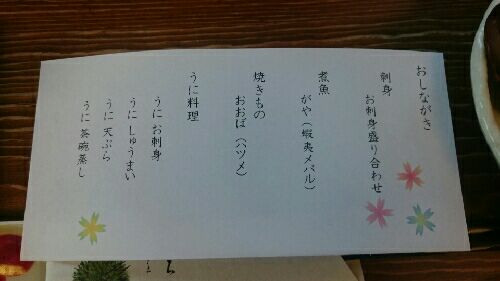 おしながき
刺身
お刺身盛り合わせ
煮魚
がや(蝦夷メバル)
焼きもの
おおば(ハツメ)
うに料理
うに お刺身
うに しゅうまい
うに 天ぷら
うに 茶碗蒸し